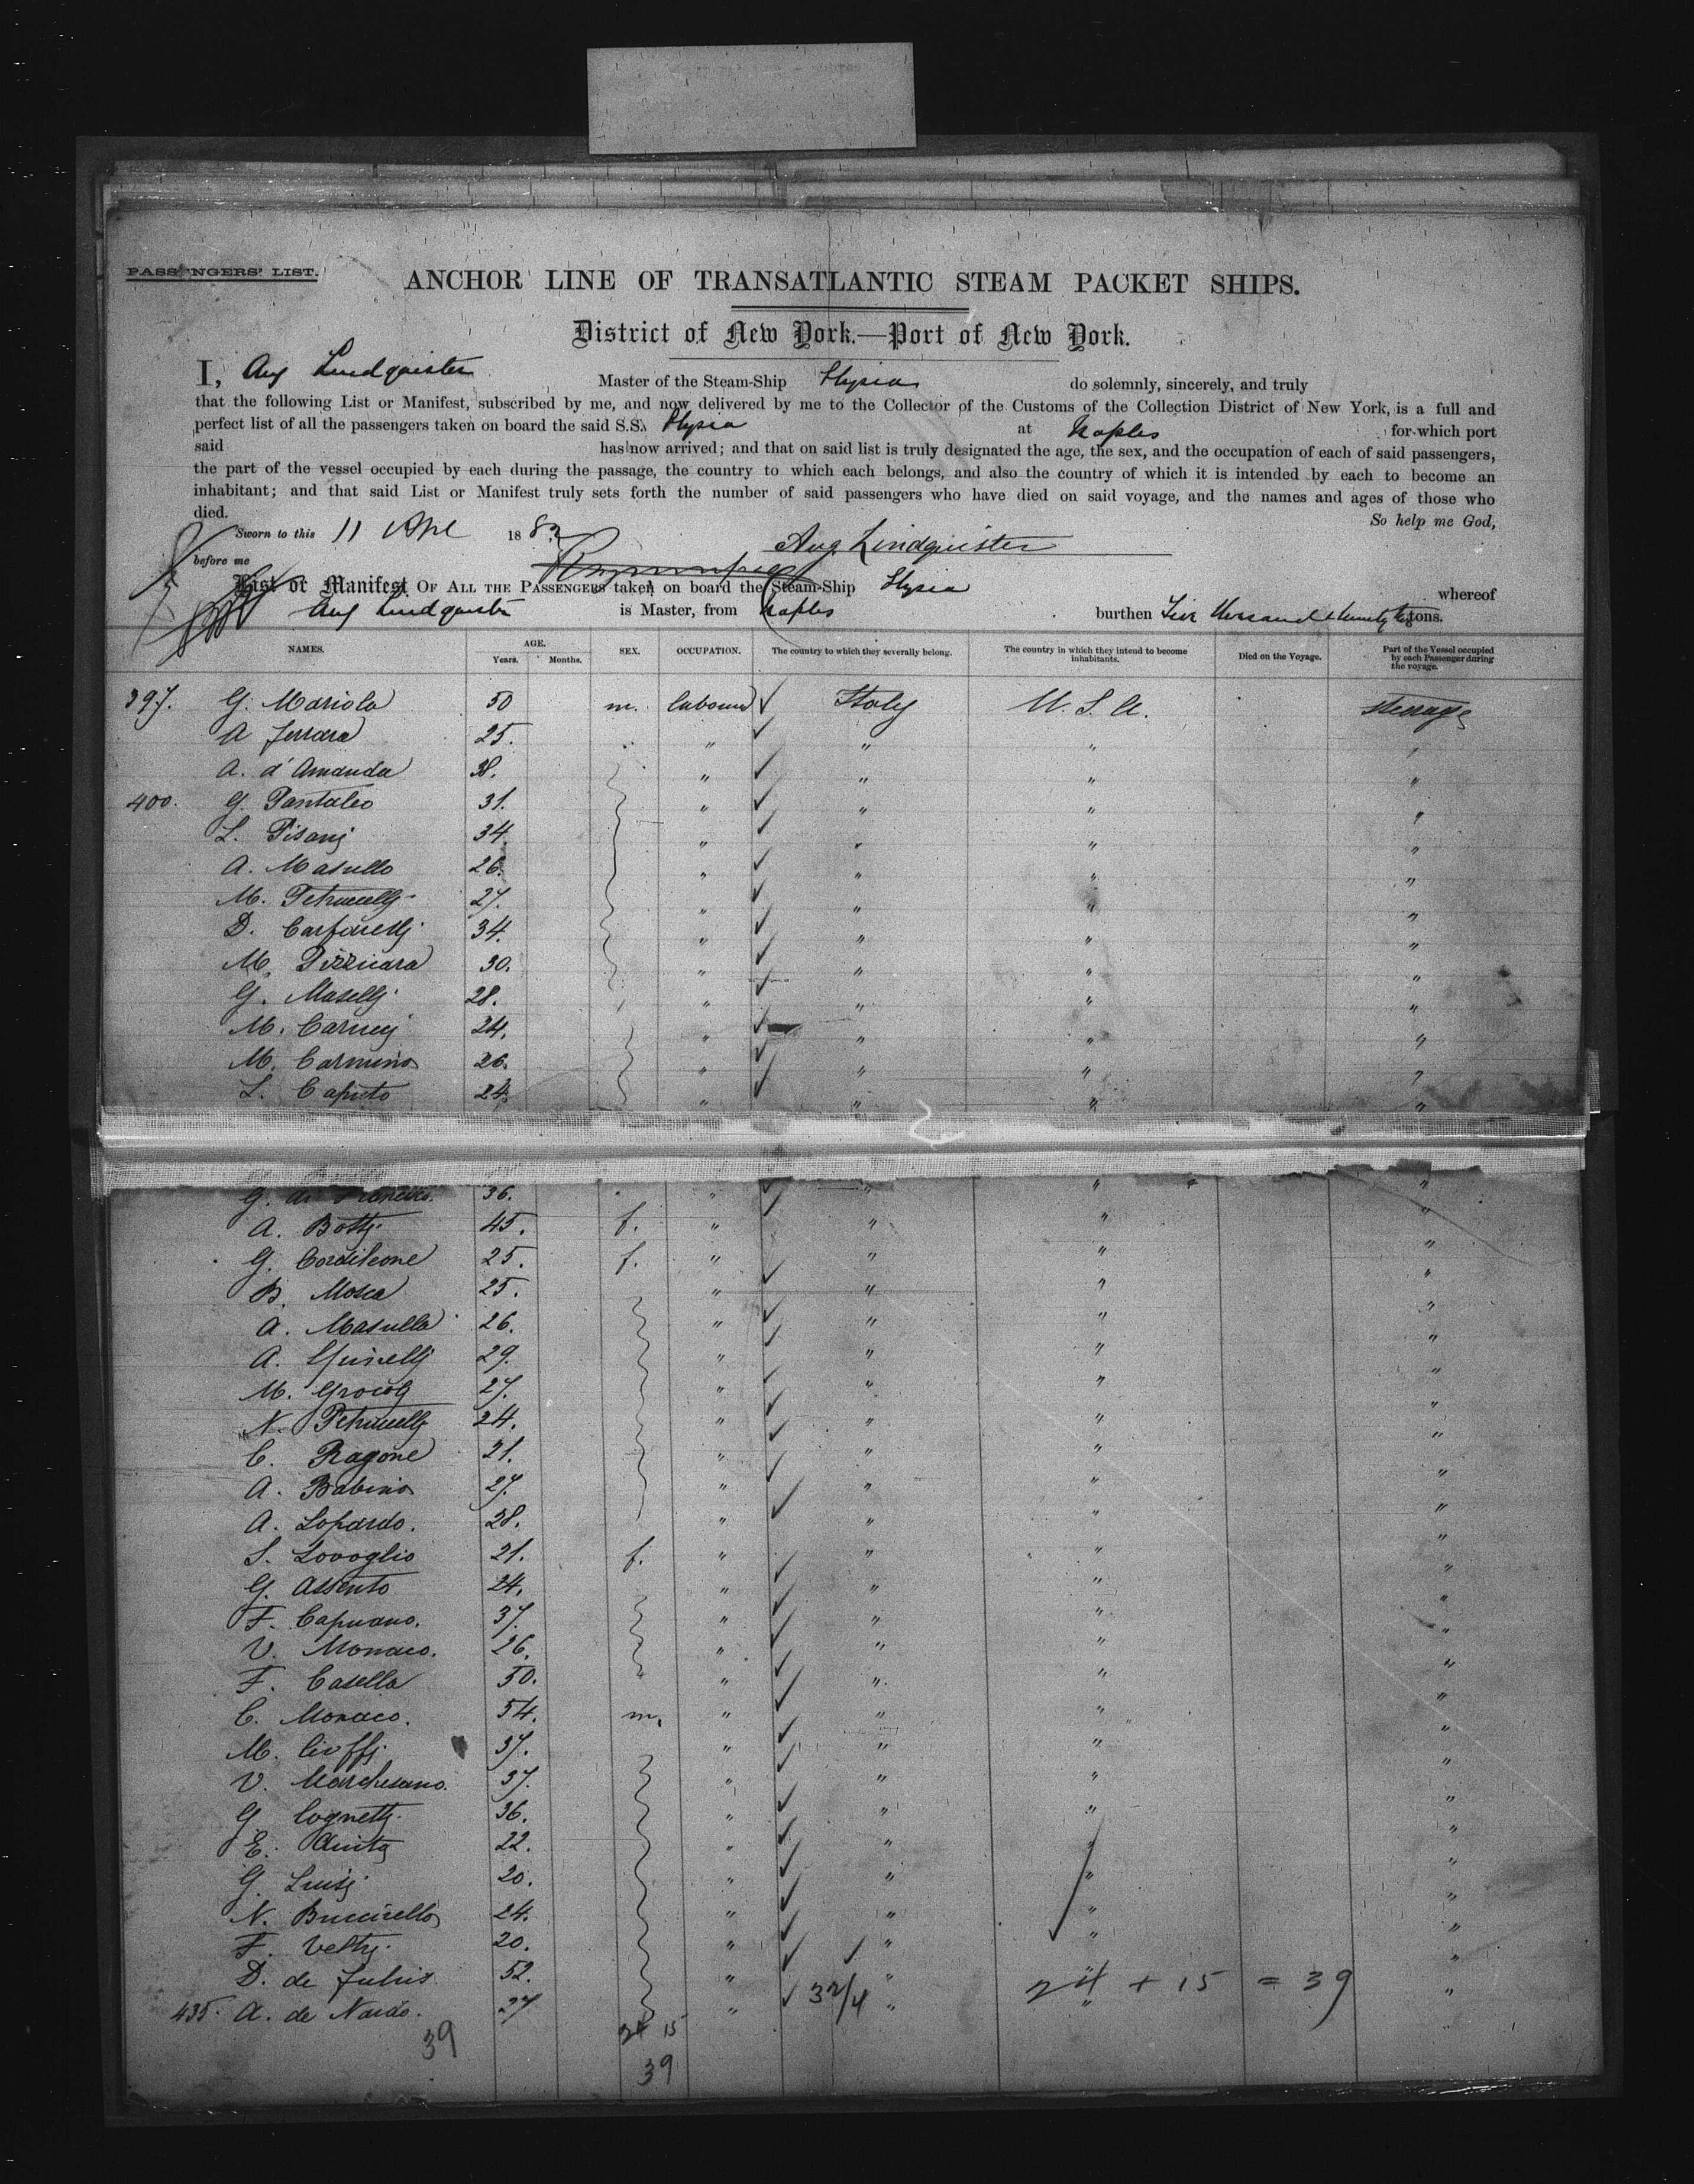 PASSENGERS' LIST.
ANCHOR LINE OF TRANSATLANTIC STEAM PACKET SHIPS.
District of New York.—Port of New York.
I, Aug Lindquister Master of the Steam-Ship Elysia do solemnly, sincerely, and truly
that the following List or Manifest, subscribed by me, and now delivered by me to the Collector of the Customs of the Collection District of New York, is a full and
perfect list of all the passengers taken on board the said S.S. Elysia at Naples for which port
said has now arrived; and that on said list is truly designated the age, the sex, and the occupation of each of said passengers,
the part of the vessel occupied by each during the passage, the country to which each belongs, and also the country of which it is intended by each to become an
inhabitant; and that said List or Manifest truly sets forth the number of said passengers who have died on said voyage, and the names and ages of those who
died. So help me God,
Sworn to this 11 Apl 1882 Aug. Lindquister
before me
List or Manifest OF ALL THE PASSENGERS taken on board the Steam-Ship Elysia whereof
Aug Lindquister is Master, from Naples burthen tons.
NAMES. AGE. Years. Months. SEX. OCCUPATION. The country to which they severally belong. The country in which they intend to become inhabitants. Died on the Voyage. Part of the Vessel occupied by each Passenger during the voyage.
397. G. Mariola 50 m. labourer ✓ Italy U.S.A. Steerage
A Ferrara 25. " ✓ " " "
A. d'Amanda 38. " ✓ " " "
400. G. Pantaleo 31. " ✓ " " "
L. Pisani 34. " ✓ " " "
A. Masullo 26. " ✓ " " "
M. Petrucelli 27. " ✓ " " "
D. 34. " ✓ " " "
M. Pizzicara 30. " ✓ " " "
G. Maselli 28. " ✓ " " "
M. 24. " ✓ " " "
M. Carmino 26. " ✓ " " "
L. Caputo 24. " ✓ " " "
G. di 36. " ✓ " " "
A. Botti 45. f. " " " "
G. Cordileone 25. f. " " " "
B. Mosca 25. " ✓ " " "
A. Masulla 26. " ✓ " " "
A. Spinelli 29. " ✓ " " "
M. 27. " ✓ " " "
N. Petrucelli 24. " ✓ " " "
C. Ragone 21. " ✓ " " "
A. Babino 27. " ✓ " " "
A. Lopardo. 28. " ✓ " " "
S. Lovoglio 21. f. " " " "
G. Assento 24. " ✓ " " "
F. Capuano. 37. " ✓ " " "
V. Monaco. 26. " ✓ " " "
F. Casella 50. " ✓ " " "
C. Monaco. 54. m. " ✓ " " "
M. Cioffi 37. " ✓ " " "
V. Marchesano. 37. " ✓ " " "
G. Cognetti. 36. " ✓ " " "
E. 22. " ✓ " " "
G. Luisi 20. " ✓ " " "
N. Buccirello 24. " ✓ " " "
F. Veltri. 20. " ✓ " " "
D. de Juliis 52. " ✓ " " "
435. A. de Nardo. 27 " ✓ 32/4 " 24 + 15 = 39 "
39 24 15
39